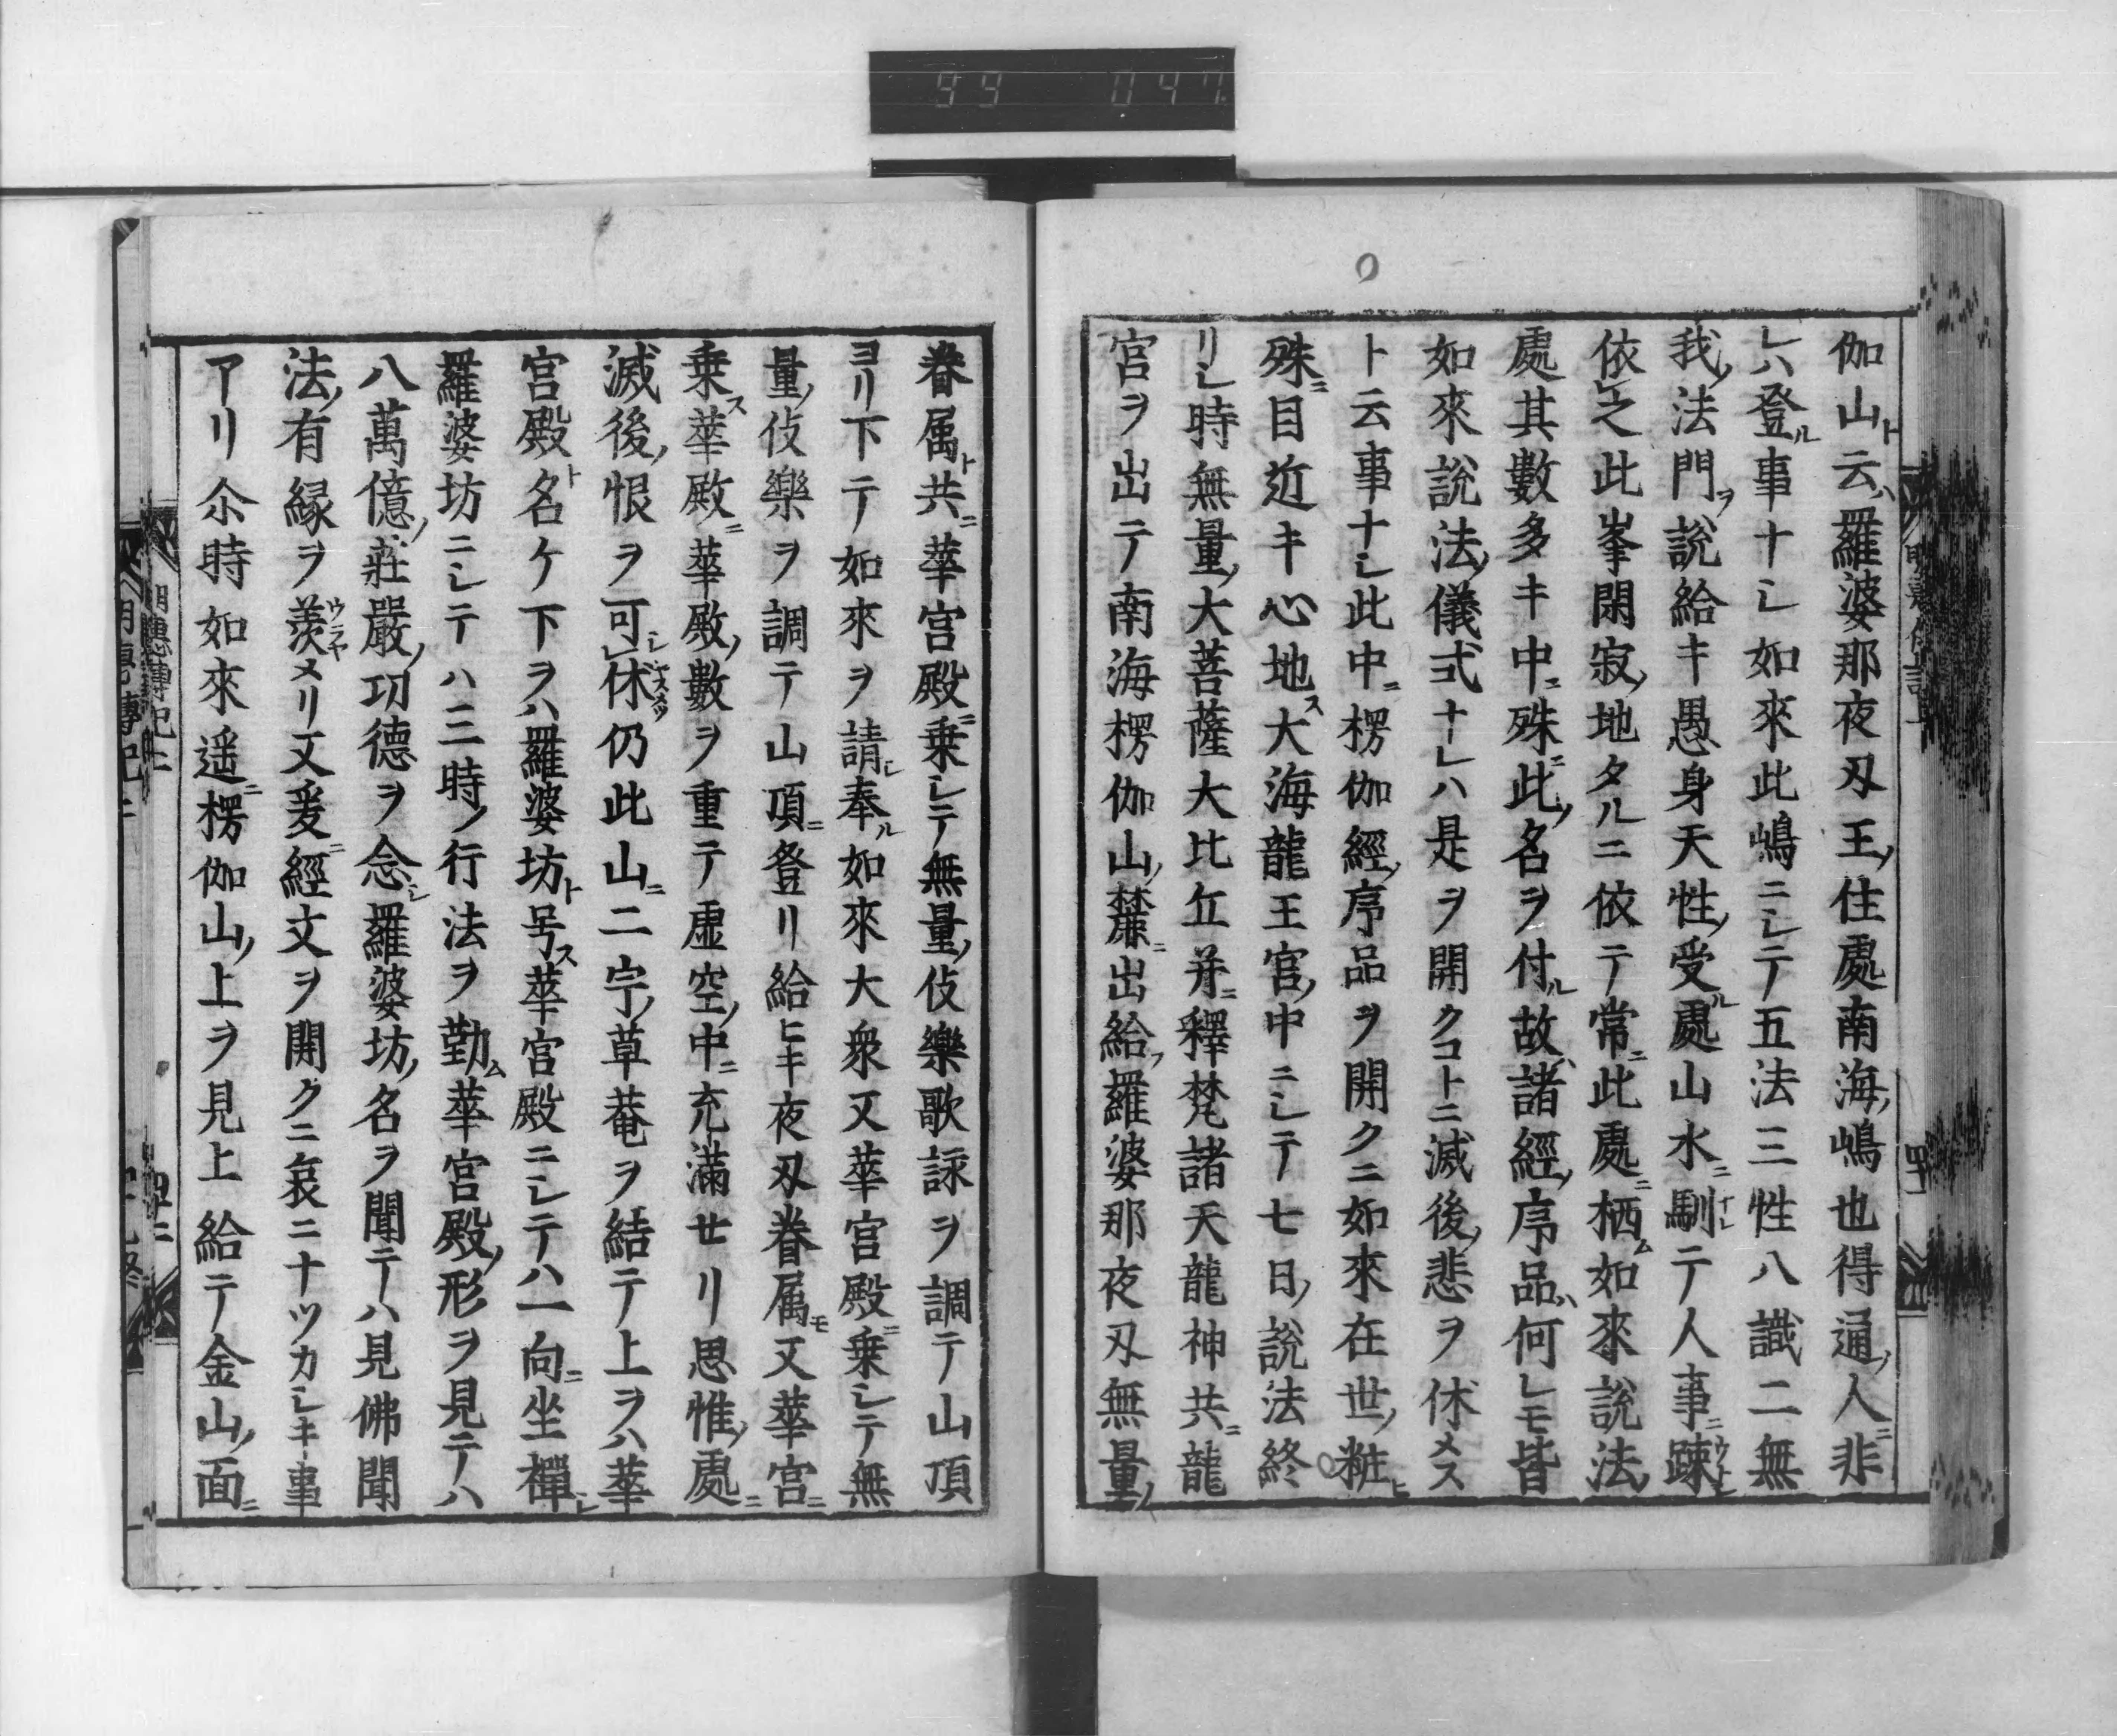 99 047
伽山ト云ハ羅婆那夜叉王ノ住處南海ノ嶋也得通ノ人ニ非
レハ登ル事ナシ如來此嶋ニシテ五法三性八識二無
我ノ法門ヲ説給キ愚身天性ノ受ル處山水ニ馴ナレテ人事ニ踈ウトシ
依之此峯閑寂ノ地タルニ依テ常ニ此處ニ栖ム如來説法ノ
處其數多キ中ニ殊ニ此ノ名ヲ付ル故ハ諸經ノ序品ハ何レモ皆
如來説法ノ儀式ナレハ是ヲ開クコトニ滅後ノ悲ヲ休メス
ト云事ナシ此中ニ楞伽經ノ序品ヲ開クニ如來在世ノ粧ヒ
殊ニ目近キ心地ス大海龍王宮ノ中ニシテ七日ノ説法終
リシ時無量ノ大菩薩大比丘并ニ釋梵諸天龍神共ニ龍
宮ヲ出テ南海楞伽山ノ麓ニ出給フ羅婆那夜叉無量ノ
眷属ト共ニ華宮殿ニ乗シテ無量ノ伎樂歌詠ヲ調テ山頂
ヨリ下テ如來ヲ請シ奉ル如來大衆又華宮殿ニ乗シテ無
量ノ伎樂ヲ調テ山頂ニ登リ給ヒキ夜叉眷属モ又華宮ニ
乗ス華殿ニ華殿ノ數ヲ重テ虚空ノ中ニ充滿セリ思惟ノ處ニ
滅後ノ恨ヲ可シ休ヤスメツ仍此山ニ二宇ノ草菴ヲ結テ上ヲハ華
宮殿ト名ケ下ヲハ羅婆坊ト号ス華宮殿ニシテハ一向ニ坐禪シ
羅婆坊ニシテハ三時ノ行法ヲ勤ム華宮殿ノ形ヲ見テハ
八萬億ノ莊嚴ノ功德ヲ念シ羅婆坊ノ名ヲ聞テハ見佛聞
法ノ有縁ヲ羨ウラヤメリ又爰ニ經文ヲ開クニ哀ニナツカシキ事
アリ尒時如來遥ニ楞伽山ノ上ヲ見上給テ金山ノ面ニ